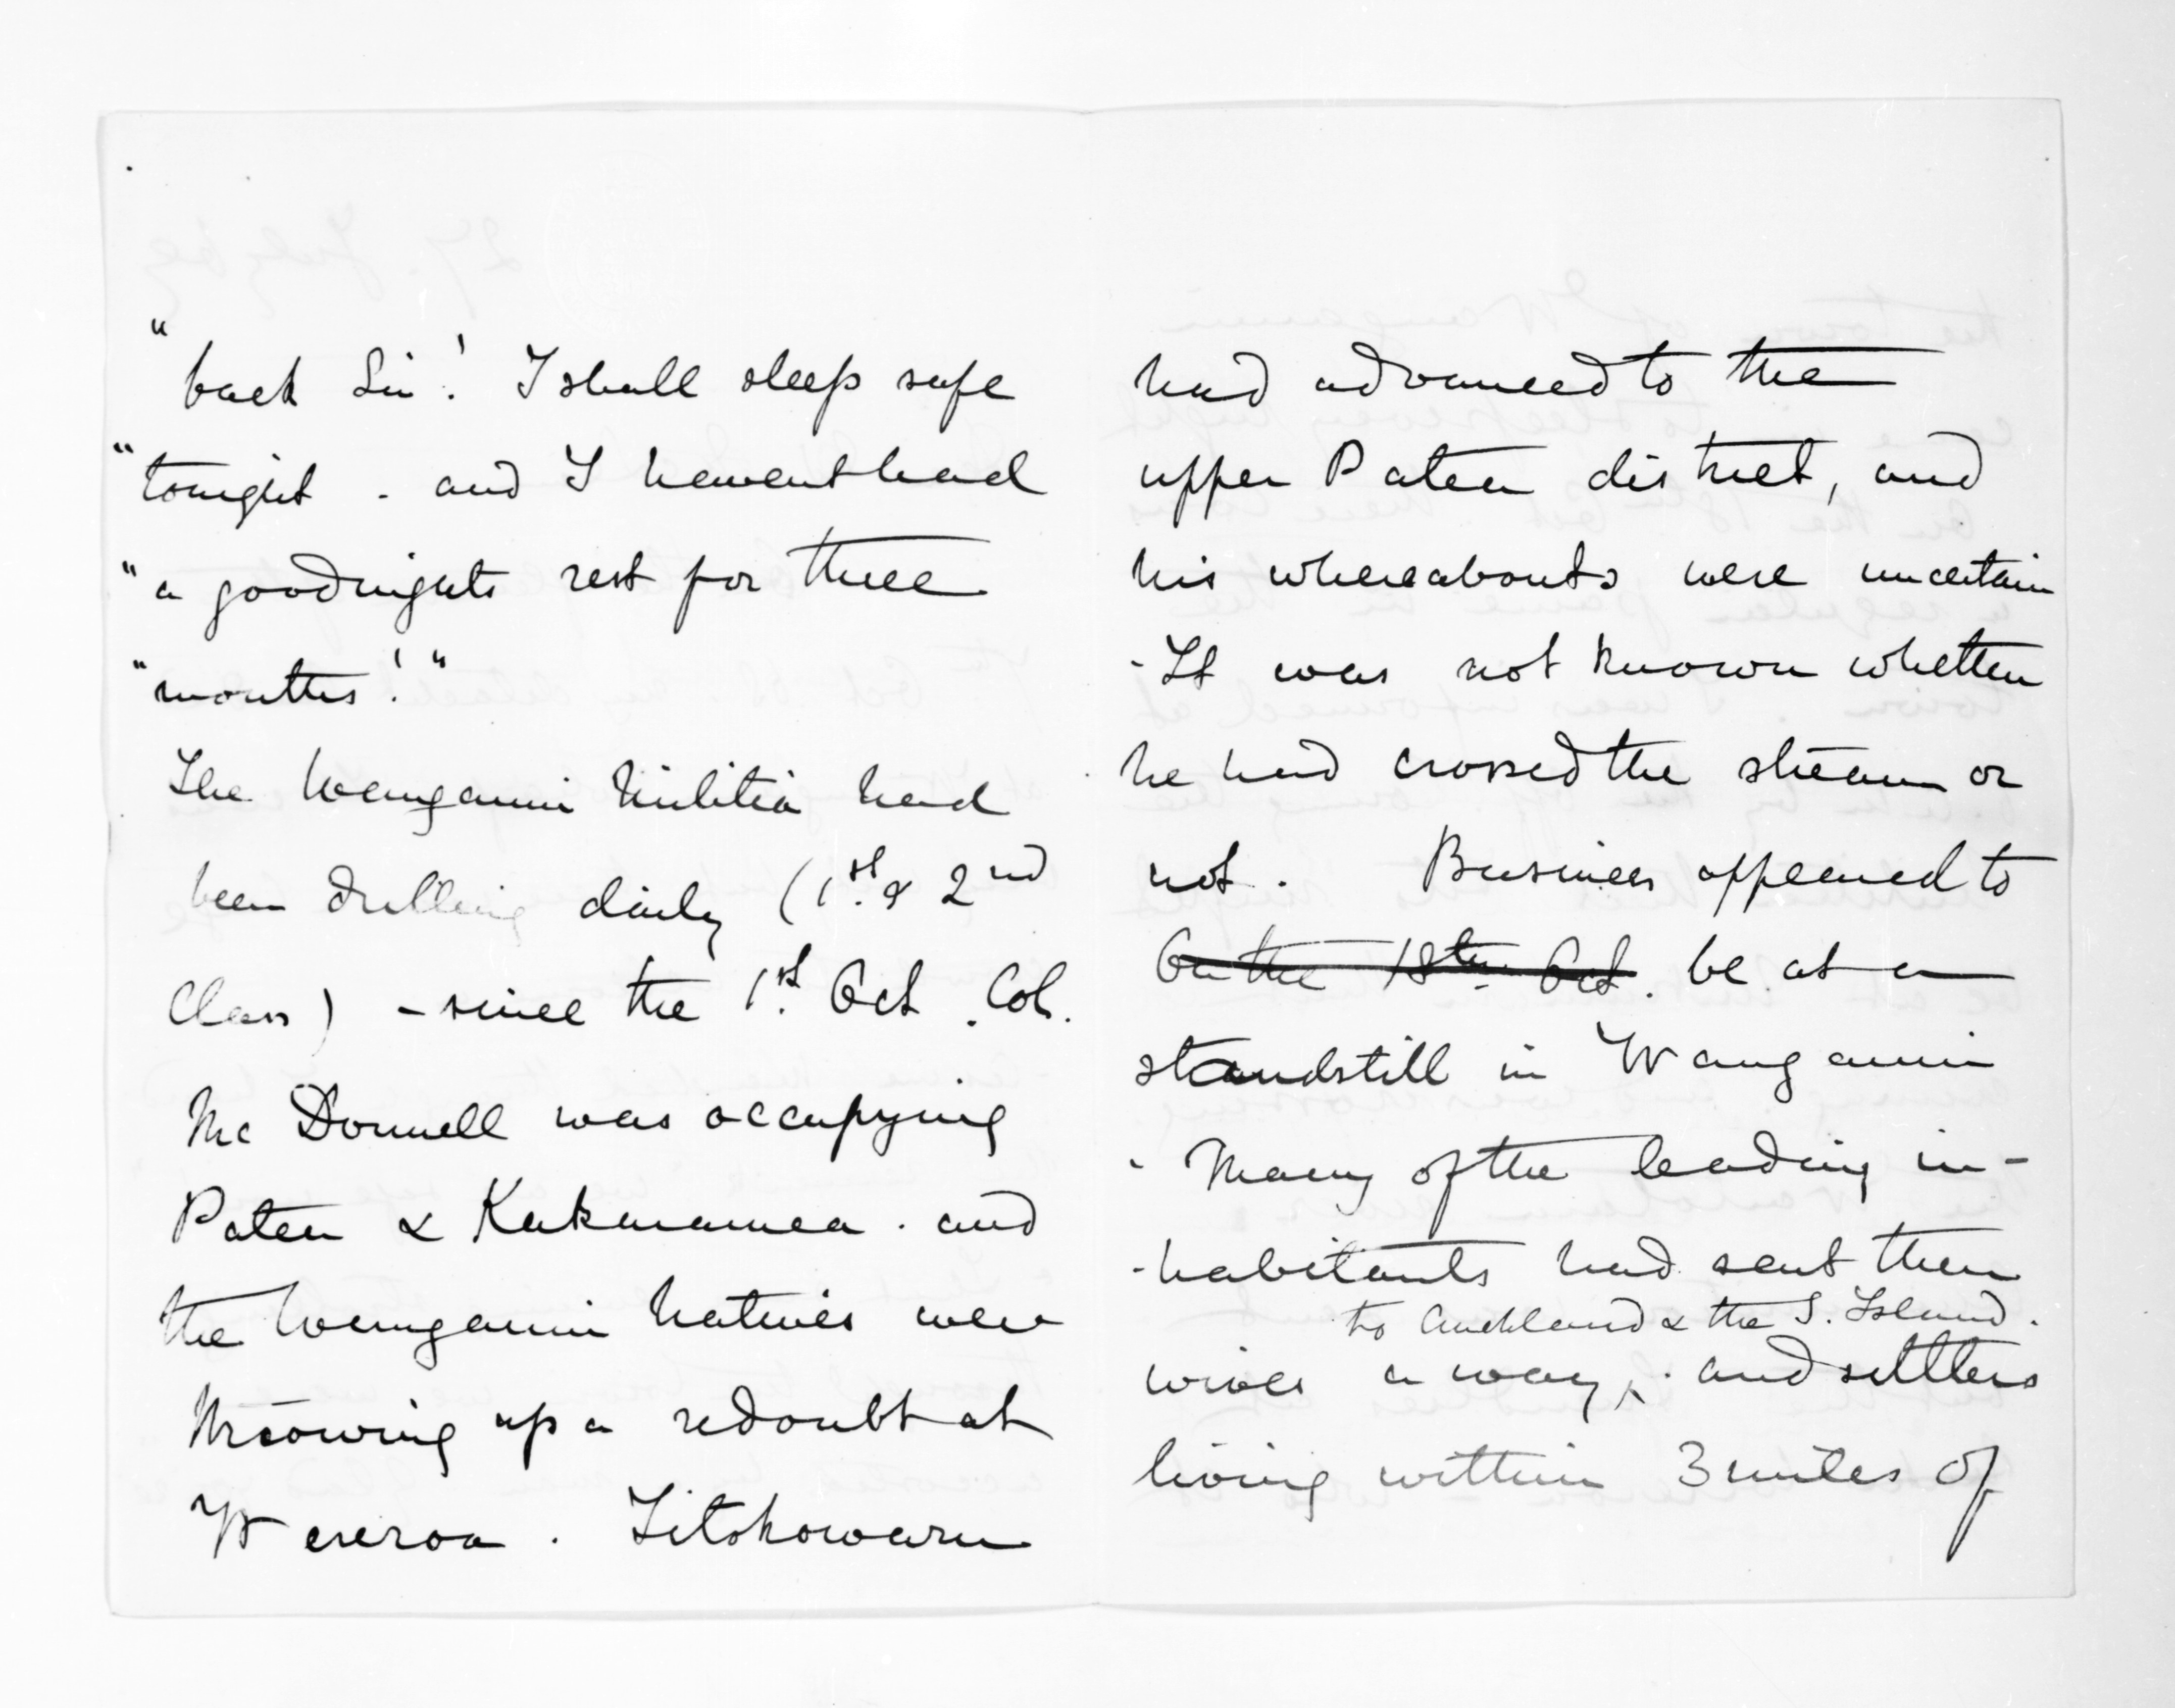 "back Sir! I shall sleep safe
"tonight - and I havent had
"a goodnights rest for three
"months!"
The Wanganui Militia had
been drilling daily (1st. & 2nd
Class) - since the 1st. Oct. Col.
McDonnell was occupying
Patea & Kakaramea. and
the Wanganui Natives were
throwing up a redoubt at
Wereroa. Titokowaru
had advanced to the
upper Patea district, and
his whereabouts were uncertain
- It was not known whether
he had crossed the stream or
not. Business appeared to
On the 18th. Oct. be at a
standstill in Wanganui
- Many of the leading in-
-habitants had sent their
to Auckland & the S. Island.
wives away, and settlers
living within 3 miles of